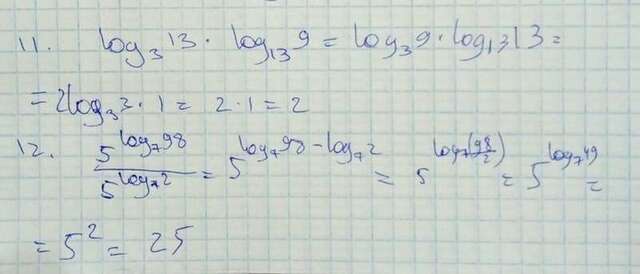 11. log₃ 13 · log₁₃ 9 = log₃ 9 · log₁₃ 13 =
= 2log₃ 3 · 1 = 2 · 1 = 2
12. 5^(log₇ 98) / 5^(log₇ 2) = 5^(log₇ 98 - log₇ 2) = 5^(log₇ (98/2)) = 5^(log₇ 49) =
= 5² = 25